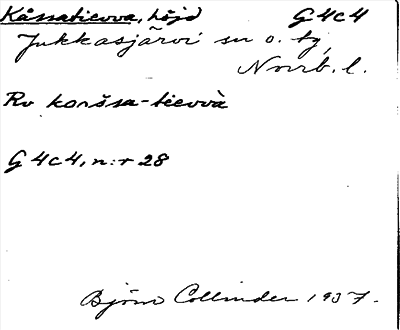 Kåssatievva, höjd G 4 c 4
Jukkasjärvi sn o. tg,
Norrb. l.
Rv koršsa-tievvà
G 4 c 4, n:r 28
Björn Collinder 1937.